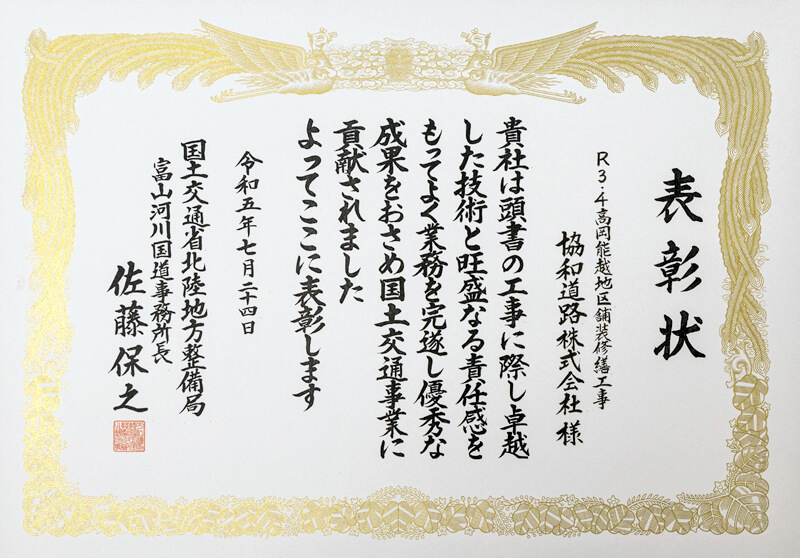 表彰状
R3・4高岡能越地区舗装修繕工事
協和道路株式会社 様
貴社は頭書の工事に際し卓越
した技術と旺盛なる責任感を
もってよく業務を完遂し優秀な
成果をおさめ国土交通事業に
貢献されました
よってここに表彰します
令和五年七月二十四日
国土交通省北陸地方整備局
富山河川国道事務所長
佐藤保之